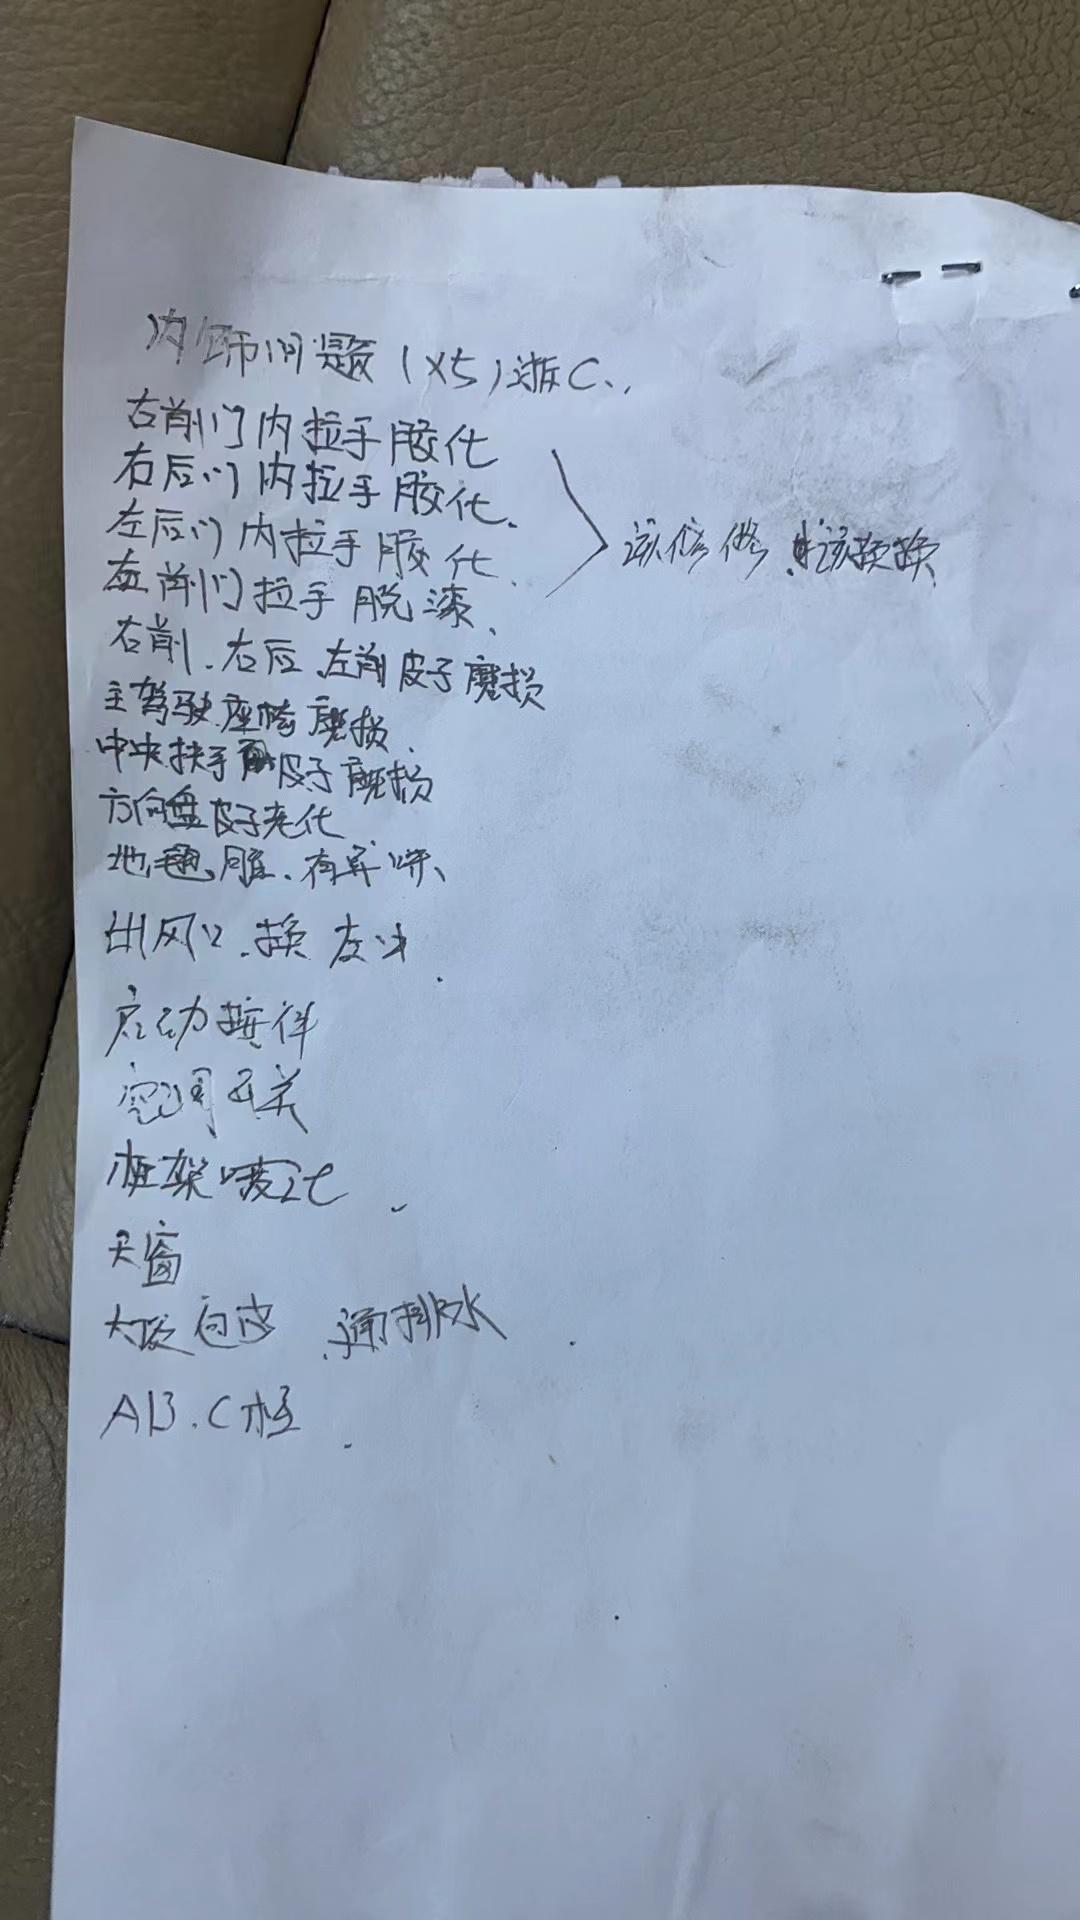 内饰问题（X5）浙C..
右前门内拉手胶化
右后门内拉手胶化.
左后门内拉手胶化.
左前门拉手脱漆.
该修修.该换换
右前.右后.左前皮子磨损
主驾驶座椅磨损.
中央扶手皮子磨损
方向盘皮子老化
地毯.脏.有异味.
出风口.换左中.
启动按件
空调开关
框架
天窗
大顶包皮.通排水.
A B.C柱.